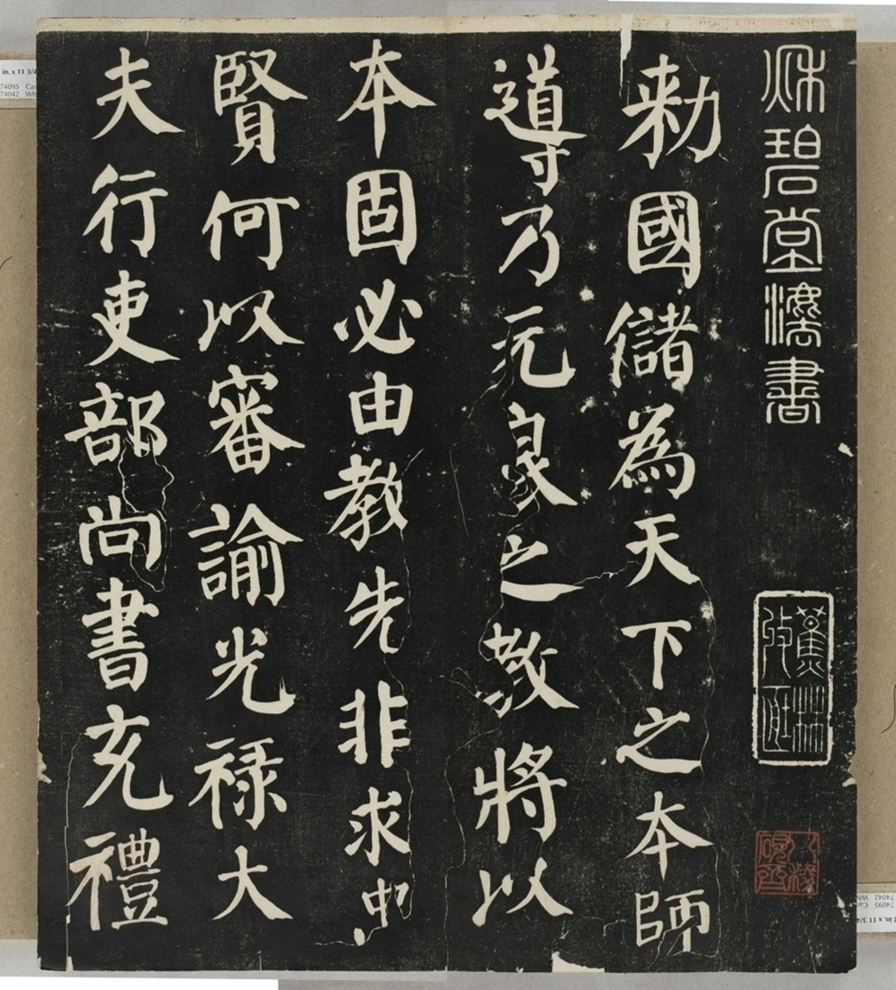 秋碧堂法書
蕉林
勑國儲為天下之本師
導乃元良之教將以
本固必由教先非求中
賢何以審諭光禄大
夫行吏部尚書充禮